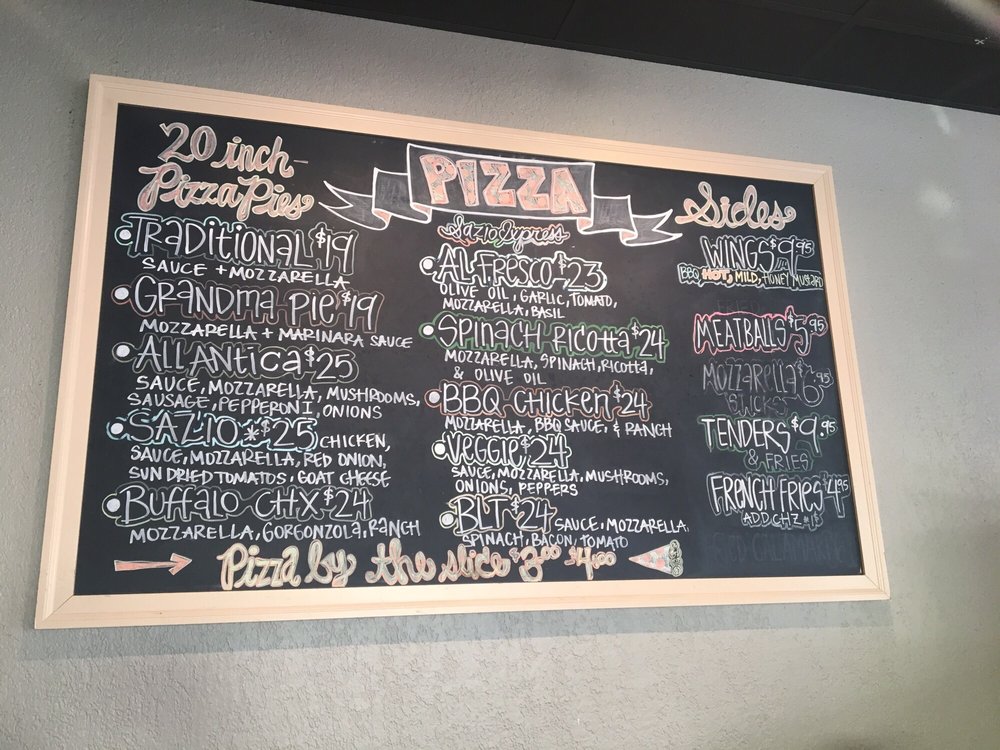 20 inch
Pizza Pies
TRADITIONAL $19
SAUCE + MOZZARELLA
GRANDMA PIE $19
MOZZARELLA + MARINARA SAUCE
ALLANTICA $25
SAUCE, MOZZARELLA, MUSHROOMS,
SAUSAGE, PEPPERONI, ONIONS
SAZIO * $25 CHICKEN,
SAUCE, MOZZARELLA, RED ONION,
SUN DRIED TOMATOS, GOAT CHEESE
BUFFALO CHX $24
MOZZARELLA, GORGONZOLA, RANCH
PIZZA
Sazio Express
AL FRESCO $23
OLIVE OIL, GARLIC, TOMATO,
MOZZARELLA, BASIL
SPINACH RICOTTA $24
MOZZARELLA, SPINACH, RICOTTA,
& OLIVE OIL
BBQ CHICKEN $24
MOZZARELLA, BBQ SAUCE, & RANCH
VEGGIE $24
SAUCE, MOZZARELLA, MUSHROOMS,
ONIONS, PEPPERS
BLT $24 SAUCE, MOZZARELLA,
SPINACH, BACON, TOMATO
Sides
WINGS $9.95
BBQ, HOT, MILD, HONEY MUSTARD
FRIED
MEATBALLS $5.95
MOZZARELLA $6.95
STICKS
TENDERS $9.95
& FRIES
FRENCH FRIES $4.95
ADD CHZ
Pizza by the slice $3.00 $4.00